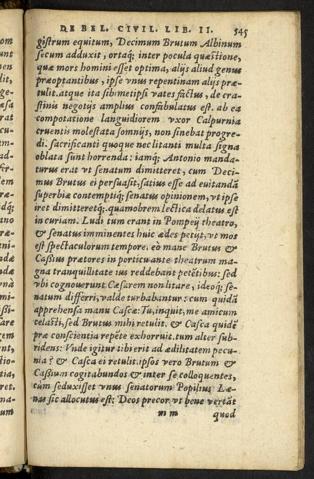 DE BEL. CIVIL. LIB. II. 545
gistrum equitum, Decimum Brutum Albinum
secum adduxit, ortaq; inter pocula quæstione,
quæ mors homini esset optima, alijs aliud genus
præoptantibus, ipse vnus repentinam alijs præ-
tulit. atque ita sibimetipsi vates factus, de cra-
stinis negotijs amplius confabulatus est. ab ea
compotatione languidiorem vxor Calpurnia
cruentis molestata somnijs, non sinebat progre-
di. sacrificanti quoque nec litanti multa signa
oblata sunt horrenda: iamq; Antonio manda-
turus erat vt senatum dimitteret, cum Deci-
mus Brutus ei persuasit, satius esse ad euitandã
superbiæ contemptiq; senatus opinionem, vt ipse
iret dimitteretq;. quamobrem lectica delatus est
in curiam. Ludi tum erant in Pompeij theatro,
& senatus imminentes huic ædes petijt, vt mos
est spectaculorum tempore. eò manè Brutus &
Cassius prætores in porticu ante theatrum ma-
gna tranquillitate ius reddebant petẽtibus: sed
vbi cognouerunt Cæsarem non litare, ideoq; se-
natum differri, valde turbabantur: cum quidã
apprehensa manu Cascæ: Tu, inquit, me amicum
celasti, sed Brutus mihi retulit. & Casca quidẽ
præ conscientia repẽte exhorruit. tum alter sub-
ridens: Vnde igitur tibi erit ad ædilitatem pecu-
nia? & Casca ei retulit. ipsos vero Brutum &
Cassium cogitabundos & inter se colloquentes,
cùm seduxisset vnus senatorum Popilius Læ-
nas sic allocutus est: Deos precor vt bene vertãt
m m quod